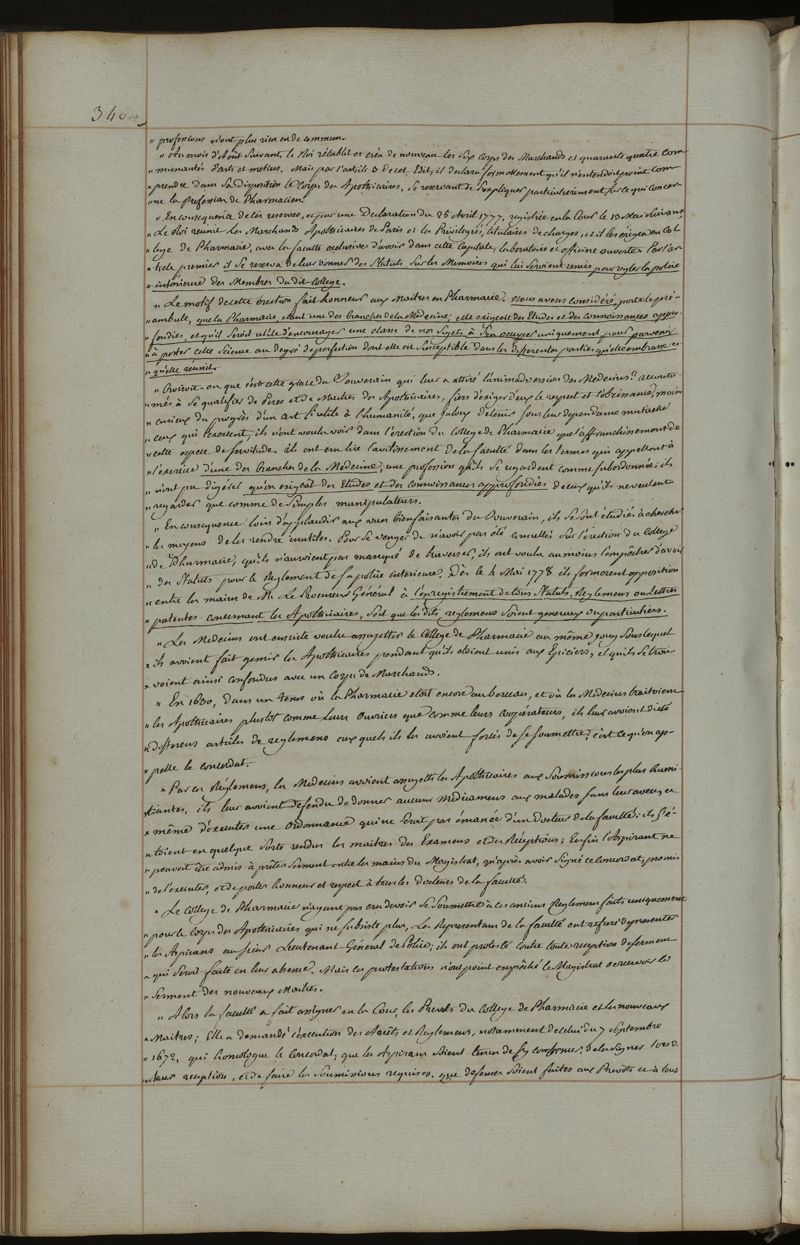 340
" professions n'ont plus rien eu de commun.
" Au mois d'Aout suivant, le Roi rétablit et créa de nouveau les Six Corps des Marchands et quarante quatre com
" munautés d'arts et metiers. Mais par l'article 3 de cet Edit, il declara formellement qu'il n'entendoit point com
" prendre dans sa disposition le Corps des Apothicaires, se reservant de s'expliquer particulierement sur ce qui concer
" ne la profession de Pharmacien.
" En consequence de ces reserves, et par une Declaration du 25 Avril 1777. registrée en la Cour le 13 Mai suivant,
" Le Roi réunit les Marchands Apothicaires de Paris et les Privilegiés, titulaires de charges, et il les érigea en Col
" lege de Pharmacie, avec la faculté exclusive d'avoir dans cette Capitale, laboratoire et officine ouverte. Par l'ar
" ticle premier il se reserva de leur donner des Statuts sur les Memoires qui lui seroient remis pour regler la police
" intérieure des Membres dudit College.
" Le motif de cette érection fait honneur aux Maitres en Pharmacie. Nous avons considéré, porte le pré-
" ambule, que la Pharmacie, étant une des branches de la Medecine, elle exigeoit des Etudes et des connoissances appro
" fondies, et qu'il seroit utile d'encourager une classe de nos Sujets à s'en occuper uniquement pour parvenir
" à porter cette Science au degré de perfection dont elle est susceptible dans les differentes parties qu'elle embrasse et
" qu'elle réunit.
" Croiroit-on que c'est cette grace du Souverain qui leur a attiré l'animadversion des Medecins? accoutu
" més à se qualifier de Peres et de Maitres des Apothicaires, fiers d'exiger d'eux le respect et l'obéissance, moins
" curieux du progrès d'un art si utile à l'humanité, que jaloux de tenir sous leur dependance
" ceux qui l'exercent, ils n'ont voulu voir dans l'érection du College de Pharmacie que l'affranchissement de
" cette espece de servitude. ils ont cru lire l'avilissement de la faculté dans les termes qui appellent à
" l'exercice d'une des branches de la Medecine, une profession qu'ils se regardent comme subordonnée: ils
" n'ont pu digérer qu'on exigeat des Etudes et des connoissances approfondies de ceux qu'ils ne veulent
" regarder que comme de simples manipulateurs.
" En consequence loin d'applaudir aux vues bienfaisantes du Souverain, ils se sont étudiés à chercher
" les moyens de les rendre inutiles. Pour se venger de n'avoir pas été consultés sur l'érection du College
" de Pharmacie, qu'ils n'auroient pas manqué de traverser, ils ont voulu au moins l'empêcher d'avoir
" des Statuts pour le Reglement de sa police interieure. Dès le 4 Mai 1778 ils formerent opposition
" entre les mains de M. Le Procureur Général à l'enregistrement de tous Statuts, Reglemens ou Lettres
" patentes concernant les Apothicaires, soit que lesdits reglemens soient generaux ou particuliers.
" Les Medecins ont ensuite voulu assujettir le College de Pharmacie au même joug sous lequel
" ils avoient fait gemir les Apothicaires pendant qu'ils étoient unis aux Epiciers, et qu'ils se trou
" voient ainsi confondus avec un Corps de Marchands.
" En 1630, dans un tems où la Pharmacie etoit encore au berceau, et où les Medecins traitoient
" les Apothicaires plustôt comme leurs ouvriers que comme leurs coopérateurs, ils leur avoient dicté
" differens articles de reglemens auxquels ils les avoient forcés de se soumettre; c'est ce qu'on ap-
" pelle le concordat.
" Par ces Réglemens, les Medecins avoient assujetti les Apothicaires aux soumissions les plus humi
" liantes, ils leur avoient deffendu de donner aucuns Medicamens aux malades sans leur aveu, et
" même d'executer une ordonnance qui ne seroit pas émanée d'un Docteur de la faculté: ils s'é-
" toient en quelque sorte rendus les maitres des Examens et des Réceptions; Enfin l'Aspirant ne
" pouvoit être admis à prêter serment entre les mains du Magistrat, qu'après avoir signé ce concordat, promis
" de l'executer, et de porter honneur et respect à tous les Docteurs de la faculté.
" Le College de Pharmacie n'ayant pas cru devoir se soumettre à ces anciens Reglemens faits uniquement
" pour le Corps des Apothicaires qui ne subsiste plus, Les Representans de la faculté ont refusé de presenter
" les Aspirans au sieur Lieutenant Général de Police; ils ont protesté contre toute reception de serment
" qui seroit faite en leur absence. Mais ces protestations n'ont point empêché le Magistrat de recevoir les
" serment des nouveaux Maitres.
" Alors la faculté a fait assigner en la Cour, les Prevots du College de Pharmacie et les nouveaux
" Maitres; Elle a demandé l'execution des Arrêts et Reglemens, notamment de celui du 7 Septembre
" 1672, qui homologue le concordat; que les Aspirans soient tenus de s'y conformer, de les signer lors de
" leur reception, et de faire les soumissions requises. que defenses soient faites aux Prevots et à tous